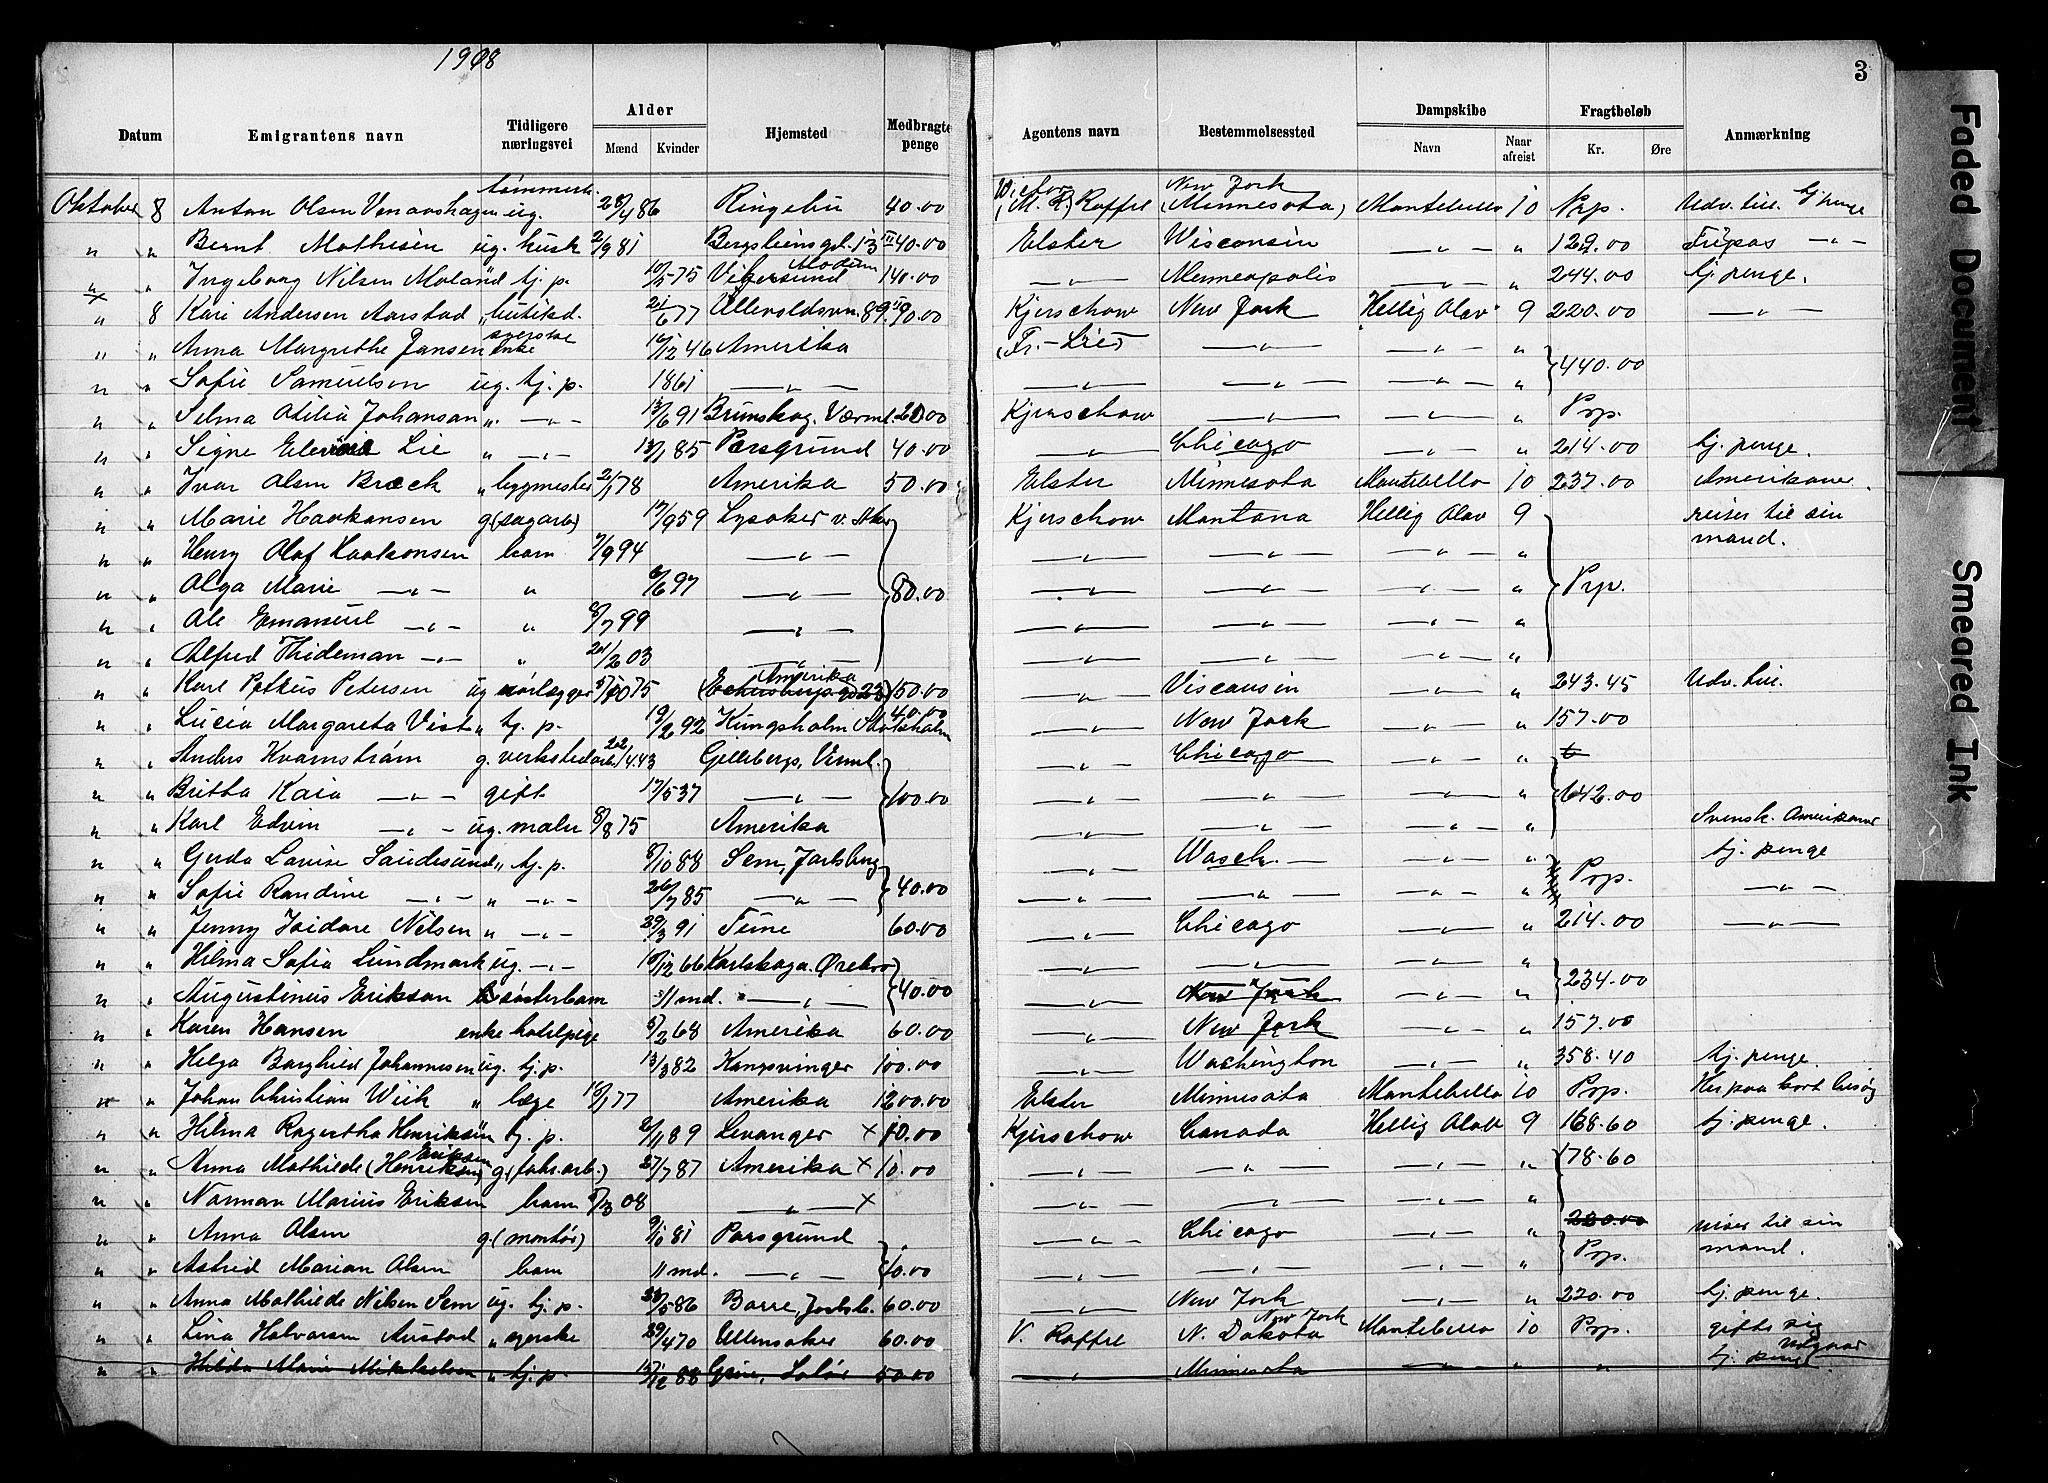 1908
3
Datum Emigrantens navn Tidligere næringsvei Alder Mænd Kvinder Hjemsted Medbragte penge Agentens navn Bestemmelsessted Dampskibe Navn Naar afreist Fragtbeløb Kr. Øre Anmærkning
Oktober 8 Anton Olsen ug. 86 Ringebu 40.00 Victor (M. R) Roffel New York (Minnesota) Montebello 10 Prp. Udv. till. tj penge
" " Bernt Mathisen ug. husk 2/9 81 13 III 40.00 Elster Wisconsin — " — " 129.00 Fripas — " —
" " Ingeborg Nilsen Moland tj. p. 10/5 75 Vikersund Modum 140.00 — " — Minneapolis — " — " 244.00 tj. penge.
" 8 Kari Andersen Aarstad " butikd. 21/6 77 Ullevoldsvn. 89 II 90.00 Kjerschow New York Hellig Olav 9 220.00 — " —
" " Anna Margrethe Jansen enke 12 46 Amerika (Fr. Lie) — " — — " — " 440.00
" " Sofie Samuelson ug. tj. p. 1861 — " — — " — — " — — " — "
" " Selma Otilia Johansan " — " — 13/6 91 Brunskog, Værml. 20.00 Kjerschow — " — — " — " Prp.
" " Signe Lie " — " — 13/1 85 Porsgrund 40.00 — " — Chicago — " — " 214.00 tj. penge.
" " Ivar Olsen Bræck " bygmester 21/1 78 Amerika 50.00 Elster Minnesota Montebello 10 237.00 Amerikaner.
" " Marie Haakonsen g (sagarb) 17/9 59 Lysaker v. Aker Kjerschow Montana Hellig Olav 9 reiser til sin mand.
" " Henry Olaf Haakonsen barn 7/9 94 — " — — " — — " — — " — "
" " Olga Marie — " — " 6/6 97 — " — 80.00 — " — — " — — " — " Prp.
" " Ole Emanuel — " — " 8/7 99 — " — — " — — " — — " — "
" " Alfred Thideman — " — " 21/2 03 — " — — " — — " — — " — "
" " Karl Petrus Petersen ug rørlægger 5/10 75 Amerika 150.00 — " — Visconsin — " — " 243.45 Udv. till.
" " Lucia Margareta Vist " tj. p. 19/2 92 Kungsholm Stockholm 40.00 — " — New York — " — " 157.00
" " Anders Kvarnström g. verkstedarb. 22/4 43 Gellebergs, Verml. — " — Chicago — " — "
" " Britta Kaia — " — gift. 17/5 37 — " — 100.00 — " — — " — — " — " 642.00
" " Karl Edvin — " — ug. maler 8/8 75 Amerika — " — — " — — " — " Svensk. Amerikaner
" " Gerda Lovise Saudesund " tj. p. 8/10 88 Sem, Jarlsberg — " — Wasch. — " — " tj. penge
" " Sofie Randine — " — " — " — 26/7 85 — " — 40.00 — " — — " — — " — " Prp. — " —
" " Jenny Isidore Nilsen " — " — 29/3 91 Tune 60.00 — " — Chicago — " — " 214.00 — " —
" " Hilma Sofia Lundmark ug. — " — 10/12 66 Karlskoga. Ørebro — " — — " — — " — "
" " Augustinus Erikson søsterbarn 11 md. — " — 40.00 — " — New York — " — " 234.00
" " Karen Hansen enke hotelpige 5/2 68 Amerika 60.00 — " — New York — " — " 157.00
" " Helga Borghild Johannesen ug. tj. p. 13/3 82 Kongsvinger 100.00 — " — Washington — " — " 358.40 tj. penge.
" " Johan Christian Wiik " læge 18/1 77 Amerika 1200.00 Elster Minnesota Montebello 10 Prp. Her paa kort besøg
" " Hilma Ragertha Henriksen tj. p. 2/11 89 Levanger × 10.00 Kjerschow Canada Hellig Olav 9 168.60 tj. penge.
" " Anna Mathilde (Henriksen) Eriksen g. (fabr.arb.) 27/7 87 Amerika × 10.00 — " — — " — — " — " 178.60
" " Norman Marius Eriksen barn 5/3 08 — " — × — " — — " — — " — "
" " Anna Olsen g. (montør) 9/10 81 Porsgrund — " — Chicago — " — " 220.00 reiser til sin mand.
" " Astrid Marian Olsen barn 11 md. — " — 10.00 — " — — " — — " — " Prp.
" " Anna Mathilde Nilsen Sem ug. tj. p. 5 86 Borre, Jarlsb. 60.00 — " — New York — " — " 220.00 tj. penge.
" " Lina Halvorsen Austad " syerske 29/4 70 Ullensaker 60.00 V. Roffel N. Dakota New York Montebello 10 Prp. gifte sig
" " Hilda Marie Mikkelsen " tj. p. 15/12 88 Grue, Solør 50.00 — " — Minnesota — " — " " tj. penge